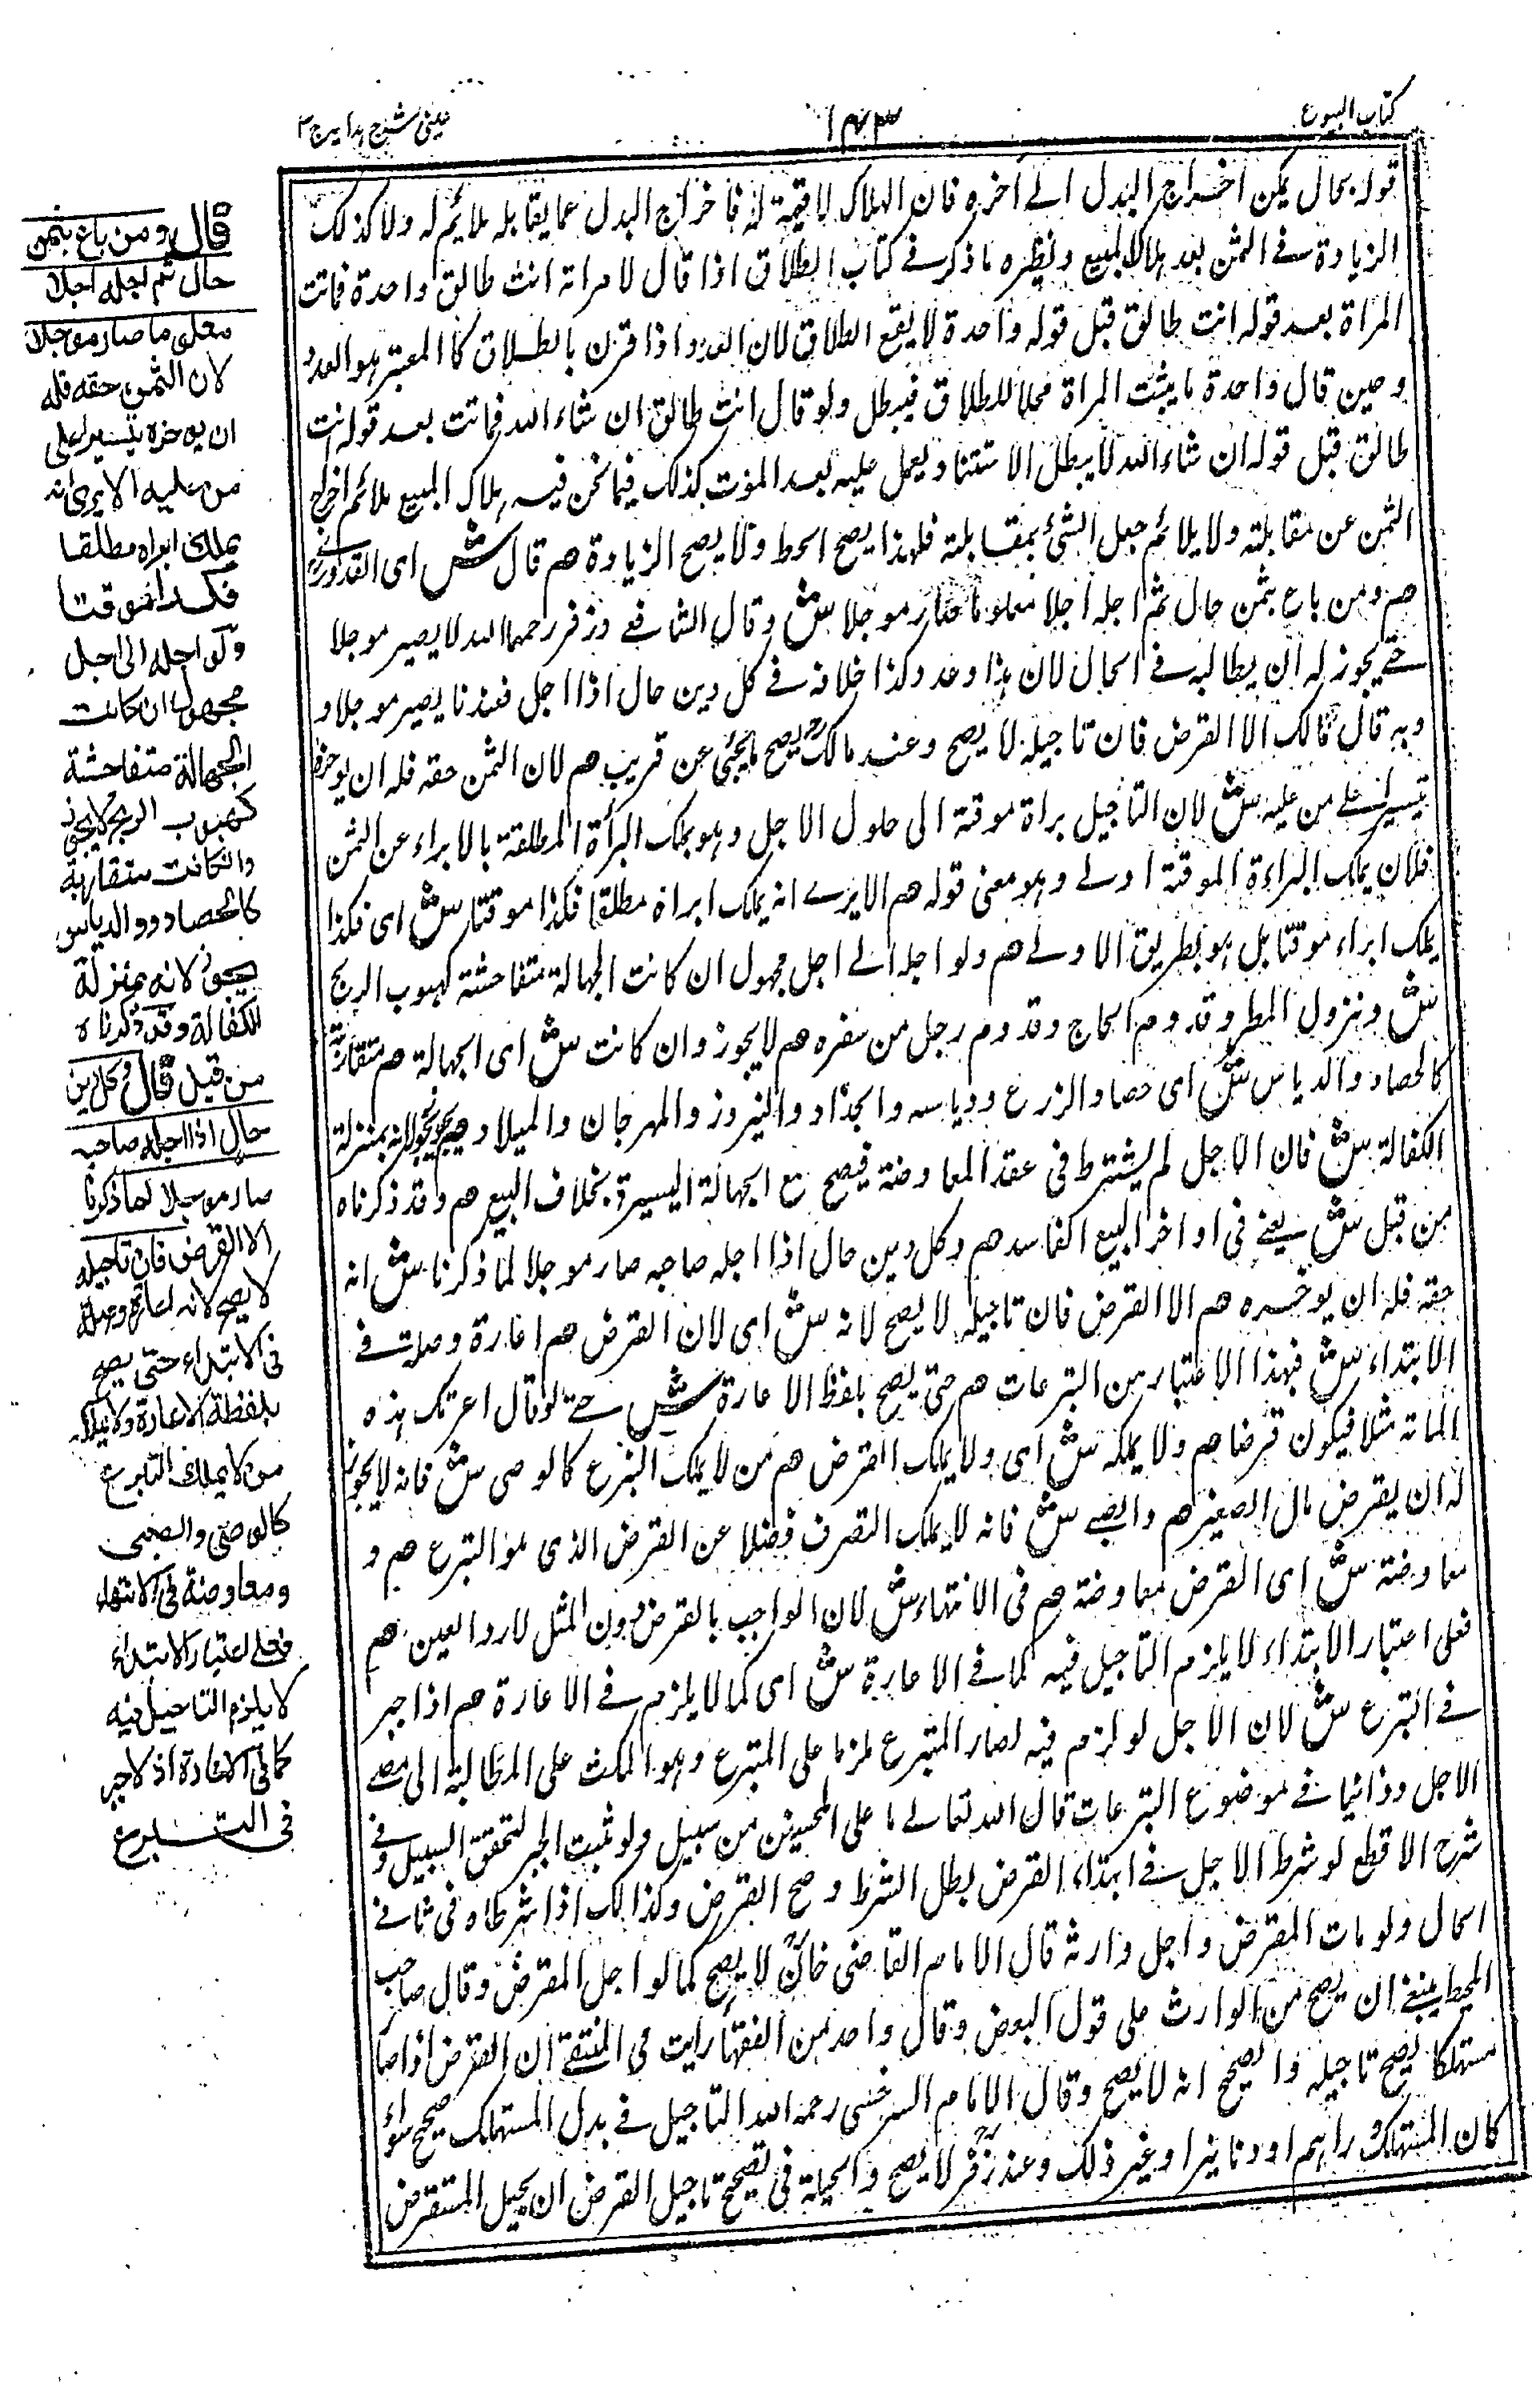 كتاب البيوع
١٤٣
عينى شرح هدايه ج ٣
قوله بحال يمكن اخراج البدل الے آخره فان الهلاك لا قيمة له فاخراج البدل عما يقابله ملائم له ولا كذلك
الزيادة فے الثمن بعد هلاك المبيع ونظيره ما ذكر فے كتاب الطلاق اذا قال لامراته انت طالق واحدة فماتت
المراة بعد قوله انت طالق قبل قوله واحدة لا يقع الطلاق لان العدد اذا قرن بالطلاق كا المعتبر هو العدد
وحين قال واحدة ما بيثت المراة محلا للطلاق فيبطل ولو قال انت طالق ان شاء الله فماتت بعد قوله انت
طالق قبل قوله ان شاء الله لا يبطل الاستثنا ويعمل عليه بعد الموت كذلك فيما نحن فيه هلاك المبيع ملائم اخراج
الثمن عن مقابلته ولا يلائم جعل الشئ بمقابلته فلهذا يصح الحط ولا يصح الزيادة هم قال ش اى القدورى
هم ومن باع بثمن حال ثم اجله اجلا معلوما صار موجلا ش وقال الشافعے وزفر رحمهما الله لا يصير موجلا
حتے يجوز له ان يطالبه فے الحال لان هذا وعد وكذا خلافه فے كل دين حال اذا اجل فعندنا يصير موجلا و
وبه قال مالك الا القرض فان تاجيله لا يصح وعند مالك يصح يجئى عن قريب هم لان الثمن حقه فله ان يوخره
تيسيرا علے من عليه ش لان التاجيل براة موقتة الى حلول الاجل وهو يملك البرأة المطلقة بالابراء عن الثمن
فلان يملك البراءة الموقتة اولے وهو معنى قوله هم الا يرے انه يملك ابراه مطلقا فكذا موقتا ش اى فكذا
يملك ابراء موقتا بل هو بطريق الاولے هم ولو اجله الے اجل مجهول ان كانت الجهالة متفاحشة كهبوب الريح
ش ونزول المطر وقدوم الحاج وقدوم رجل من سفره هم لا يجوز وان كانت ش اى الجهالة هم متقاربة
كالحصاد والدياس ش اى حصاد الزرع ودياسه والجذاذ والنيروز والمهرجان والميلاد هم يجوز لانه بمنزلة
الكفالة ش فان الاجل لم يشترط فى عقد المعاوضة فيصح مع الجهالة اليسيرة بخلاف البيع هم وقد ذكرناه
من قبل ش يعنے فى اواخر البيع الفاسد هم وكل دين حال اذا اجله صاحبه صار موجلا لما ذكرنا ش انه
حقه فله ان يوخره هم الا القرض فان تاجيله لا يصح لانه ش اى لان القرض هم اعارة وصلة فے
الابتداء ش فبهذا الاعتبار من التبرعات هم حتى يصح بلفظ الاعارة ش حتے لو قال اعرتك هذه
المائة مثلا فيكون قرضا هم ولا يملكه ش اى ولا يملك القرض هم من لا يملك التبرع كالوصى ش فانه لا يجوز
له ان يقرض مال الصغير هم والصبے ش فانه لا يملك التصرف فضلا عن القرض الذى هو التبرع هم و
معاوضة ش اى القرض معاوضة هم فى الانتهاء ش لان الواجب بالقرض دون المثل لا رد العين هم
فعلى اعتبار الابتداء لا يلزم التاجيل فيه كما فے الاعارة ش اى كما لا يلزم فے الاعارة هم اذ لا جبر
فے التبرع ش لان الاجل لو لزم فيه لصار المتبرع ملزما على المتبرع وهو المكث على المطالبة الى مضے
الاجل وذا ينافے موضوع التبرعات قال الله تعالے ما على المحسنين من سبيل ولو ثبت الجبر لتحقق السبيل وفے
شرح الاقطع لو شرط الاجل فے ابتداء القرض بطل الشرط وصح القرض وكذالك اذا شرطاه فى ثانے
الحال ولو مات المقرض واجل وارثه قال الامام القاضى خان لا يصح كما لو اجل المقرض وقال صاحب
المحيط ينبغے ان يصح من الوارث على قول البعض وقال واحد من الفقهاء رايت فى المنتقے ان القرض اذا صار
مستهلكا يصح تاجيله والصحيح انه لا يصح وقال الامام السرخسى رحمه الله التاجيل فے بدل المستهلك صحيح سواء
كان المستهلك دراهم او دنانيرا وغير ذلك وعند زفر لا يصح والحيلة فى تصحيح تاجيل القرض ان يحيل المستقرض
قال ومن باع بثمن
حال ثم اجله اجلا
معلوما صار موجلا
لان الثمن حقه فله
ان يوخره تيسيرا على
من عليه الا يرى انه
يملك ابراه مطلقا
فكذا موقتا
ولو اجله الى اجل
مجهول ان كانت
الجهالة متفاحشة
كهبوب الريح لا يجوز
وان كانت متقاربة
كالحصاد والدياس
يجوز لانه بمنزلة
الكفالة وقد ذكرناه
من قبل قال وكل دين
حال اذا اجله صاحبه
صار موجلا لما ذكرنا
الا القرض فان تاجيله
لا يصح لانه اعارة وصلة
فى الابتداء حتى يصح
بلفظة الاعارة ولا يملكه
من لا يملك التبرع
كالوصى والصبى
ومعاوضة فى الانتهاء
فعلى اعتبار الابتداء
لا يلزم التاجيل فيه
كما فى الاعارة اذ لا جبر
فى التبرع